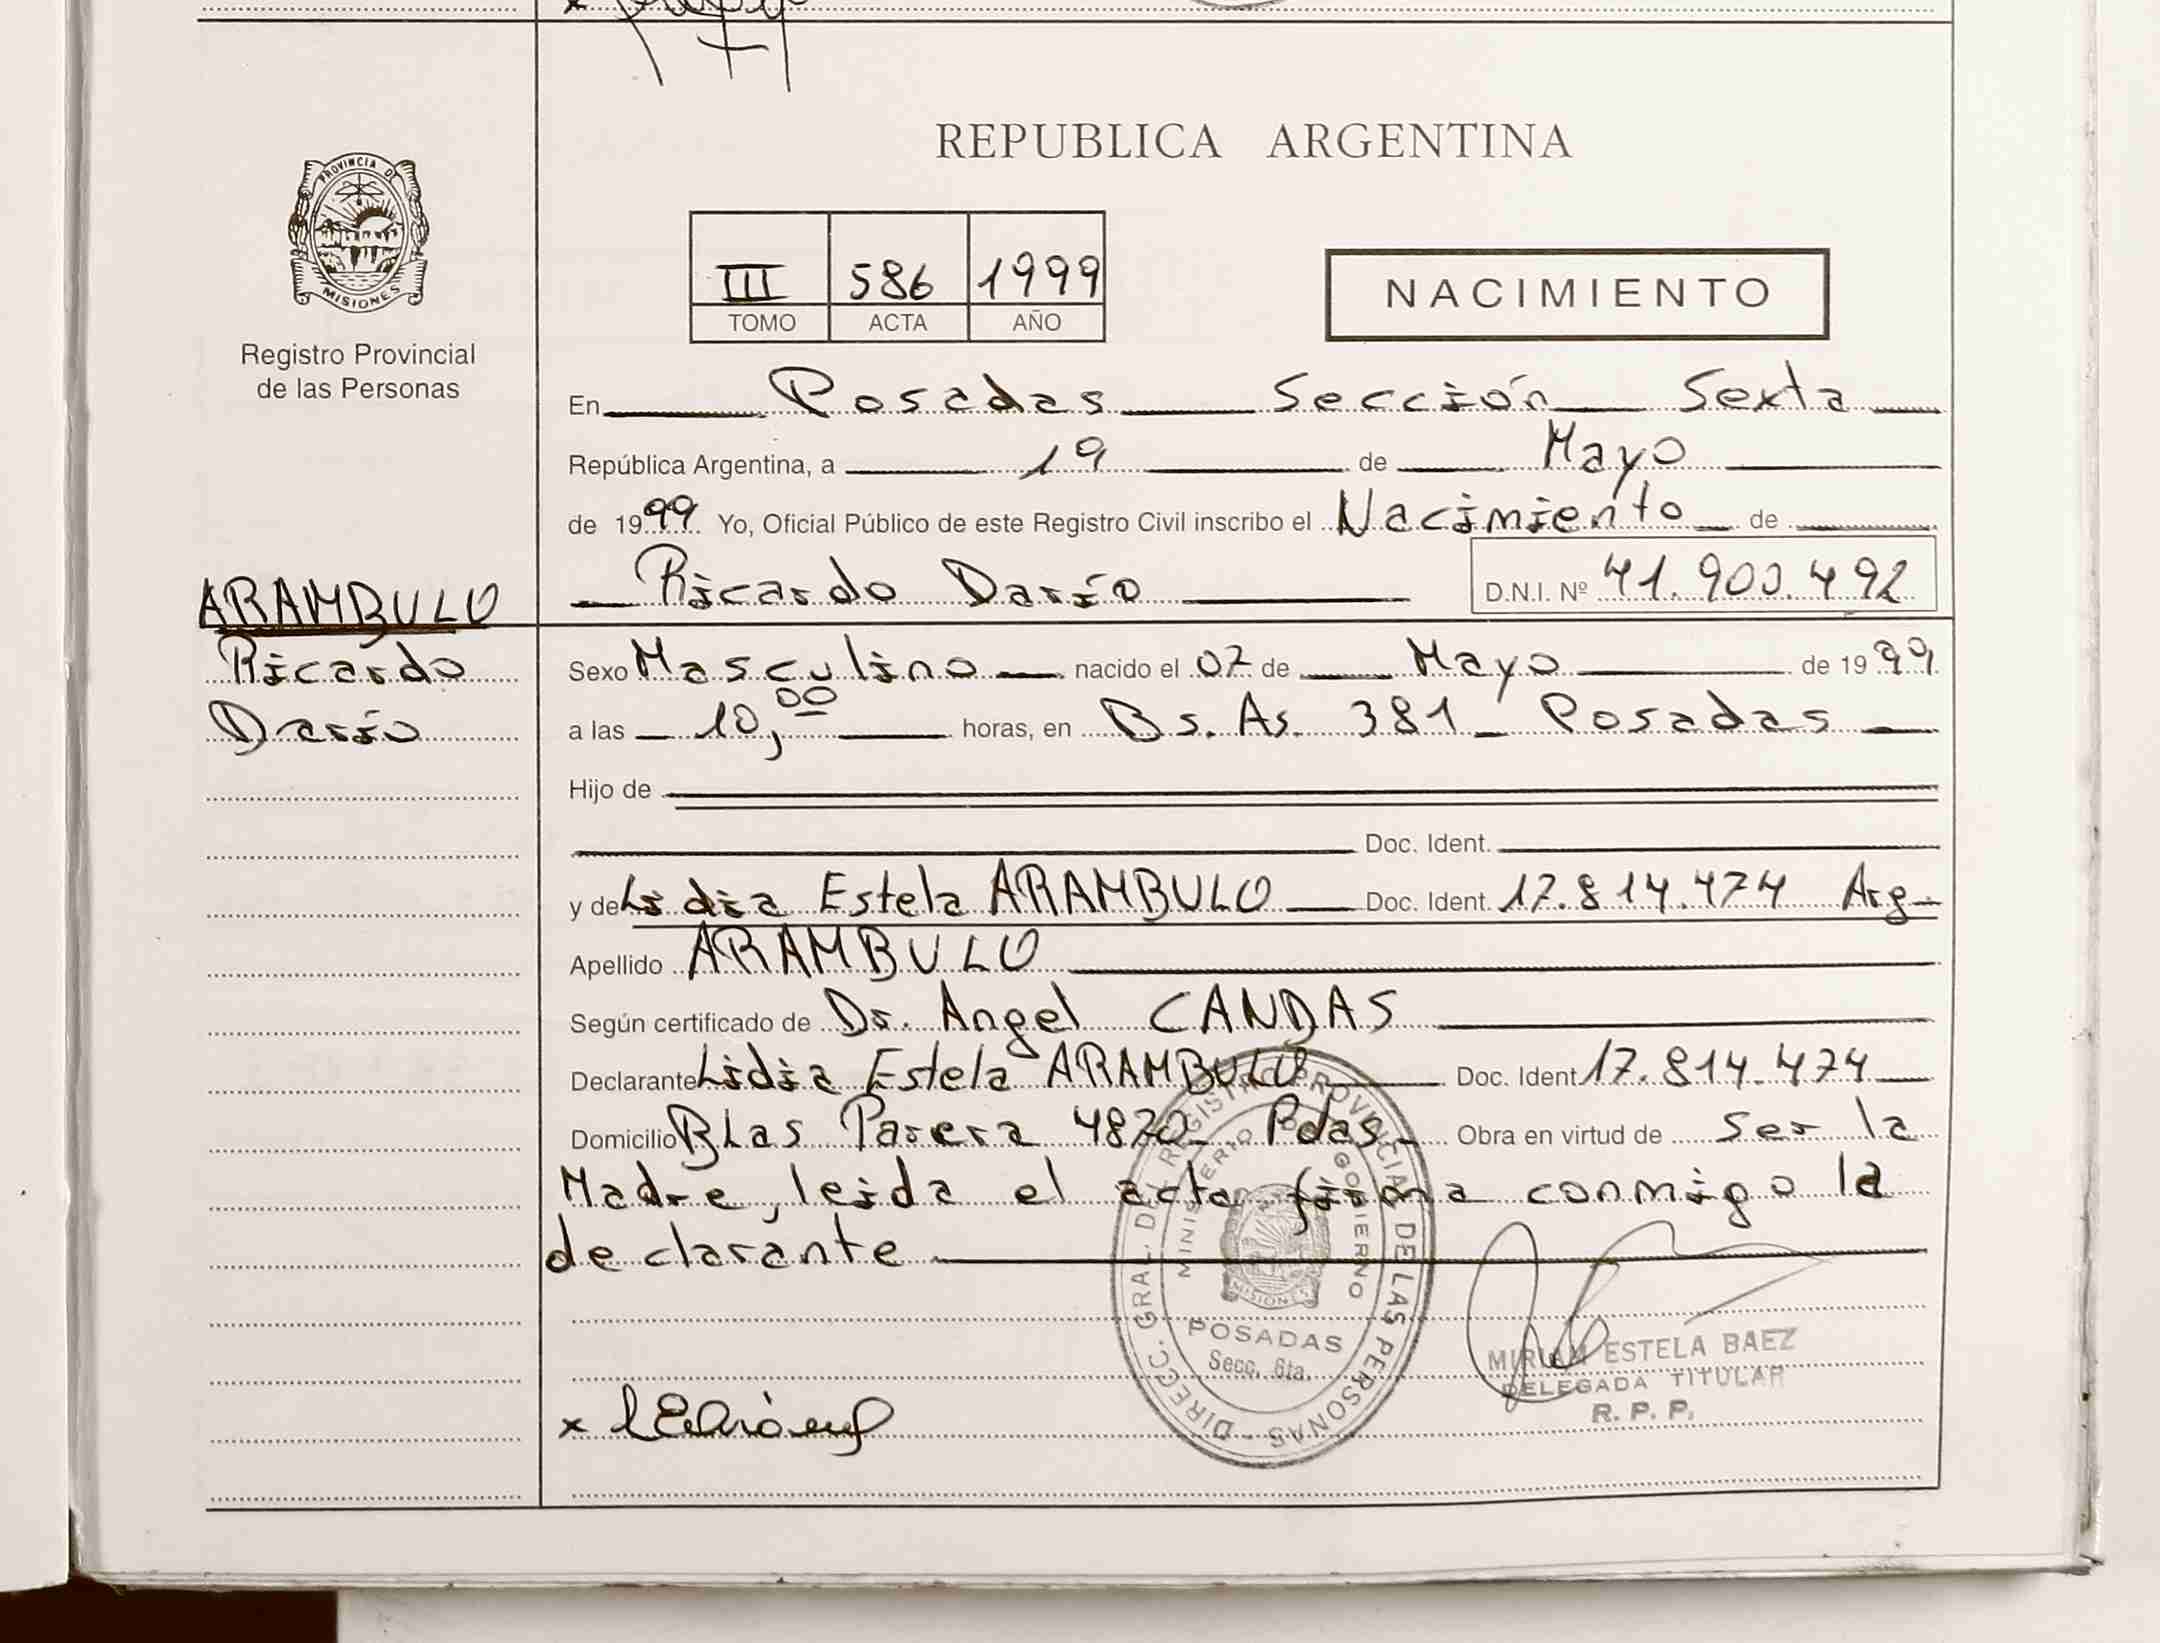 REPUBLICA ARGENTINA
PROVINCIA DE
MISIONES
Registro Provincial
de las Personas
III 586 1999
TOMO ACTA AÑO
NACIMIENTO
En Posadas Sección Sexta
República Argentina, a 19 de Mayo
de 1999 Yo, Oficial Público de este Registro Civil inscribo el Nacimiento de
Ricardo Darío D.N.I. Nº 41.900.492
ARAMBULO
Ricardo
Darío
Sexo Masculino nacido el 07 de Mayo de 1999
a las 10,00 horas, en Bs. As. 381 Posadas
Hijo de
Doc. Ident.
y de Lidia Estela ARAMBULO Doc. Ident. 17.814.474 Arg.
Apellido ARAMBULO
Según certificado de Dr. Angel CANDAS
Declarante Lidia Estela ARAMBULO Doc. Ident. 17.814.474
Domicilio Blas Parera 4820 Pdas Obra en virtud de ser la
Madre, leida el acta firma conmigo la
declarante
DIRECC. GRAL. DEL REGISTRO PROVINCIAL DE LAS PERSONAS
MINISTERIO DE GOBIERNO
MISIONES
POSADAS
Secc. 6ta.
MIRIAM ESTELA BAEZ
DELEGADA TITULAR
R. P. P.
x